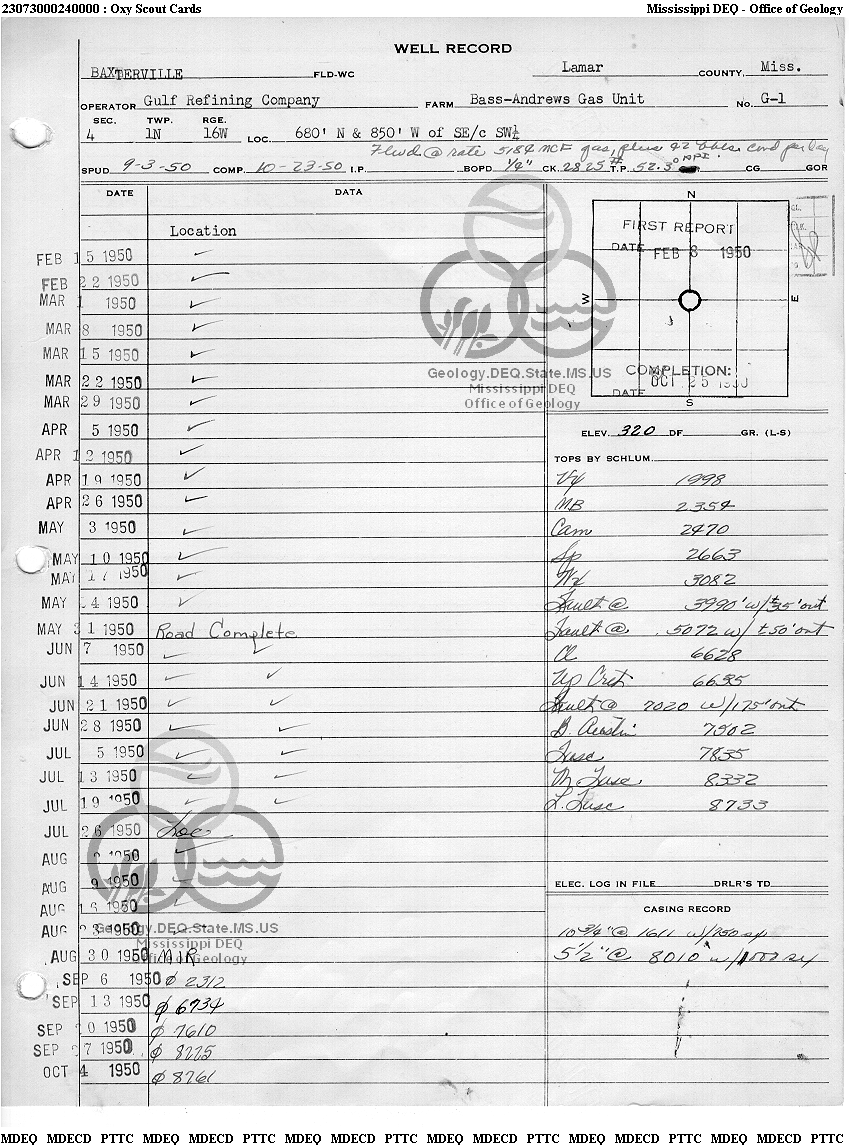 23073000240000 : Oxy Scout Cards Mississippi DEQ - Office of Geology
WELL RECORD
BAXTERVILLE FLD-WC Lamar COUNTY, Miss.
OPERATOR Gulf Refining Company FARM Bass-Andrews Gas Unit NO. G-1
SEC. TWP. RGE.
4 1N 16W LOC. 680' N & 850' W of SE/c SW¼
Flwd @ rate 5184 MCF gas, plus 42 bbls. cond per day
SPUD 9-3-50 COMP. 10-23-50 I.P. BOPD 1/4" CK. 2825# T.P. 52.3° API. CG GOR
DATE DATA
N
Location
FIRST REPORT
DATE FEB 8 1950
W E
COMPLETION:
OCT 25 1950
DATE
S
FEB 15 1950 ✓
FEB 22 1950 ✓
MAR 1 1950 ✓
MAR 8 1950 ✓
MAR 15 1950 ✓
MAR 22 1950 ✓
MAR 29 1950 ✓
APR 5 1950 ✓
APR 12 1950 ✓
APR 19 1950 ✓
APR 26 1950 ✓
MAY 3 1950 ✓
MAY 10 1950 ✓
MAY 17 1950 ✓
MAY 24 1950 ✓
MAY 31 1950 Road Complete
JUN 7 1950 ✓ ✓
JUN 14 1950 ✓ ✓
JUN 21 1950 ✓ ✓
JUN 28 1950 ✓ ✓
JUL 5 1950 ✓ ✓
JUL 13 1950 ✓ ✓
JUL 19 1950 ✓ ✓
JUL 26 1950 Loc
AUG 2 1950 ✓
AUG 9 1950 ✓
AUG 16 1950 ✓
AUG 23 1950 ✓
AUG 30 1950 M.R.
SEP 6 1950 ϕ 2312
SEP 13 1950 ϕ 6734
SEP 20 1950 ϕ 7610
SEP 27 1950 ϕ 8225
OCT 4 1950 ϕ 8761
ELEV. 320 DF GR. (L-S)
TOPS BY SCHLUM.
Vx 1998
MB 2354
Cam 2470
Sp 2663
Wx 3082
Fault @ 3990' w/±35' out
Fault @ 5072 w/ ±50' out
Cl 6628
Up Cret 6635
Fault @ 7020 w/175' out
B. Austin 7502
Tusc 7835
M Tusc 8332
L. Tusc 8733
ELEC. LOG IN FILE DRLR'S TD
CASING RECORD
10 3/4" @ 1611 w/750 sx
5 1/2" @ 8010 w/1000 sx
Geology.DEQ.State.MS.US
Mississippi DEQ
Office of Geology
Geology.DEQ.State.MS.US
Mississippi DEQ
Office of Geology
MDEQ MDECD PTTC MDEQ MDECD PTTC MDEQ MDECD PTTC MDEQ MDECD PTTC MDEQ MDECD PTTC MDEQ MDECD PTTC